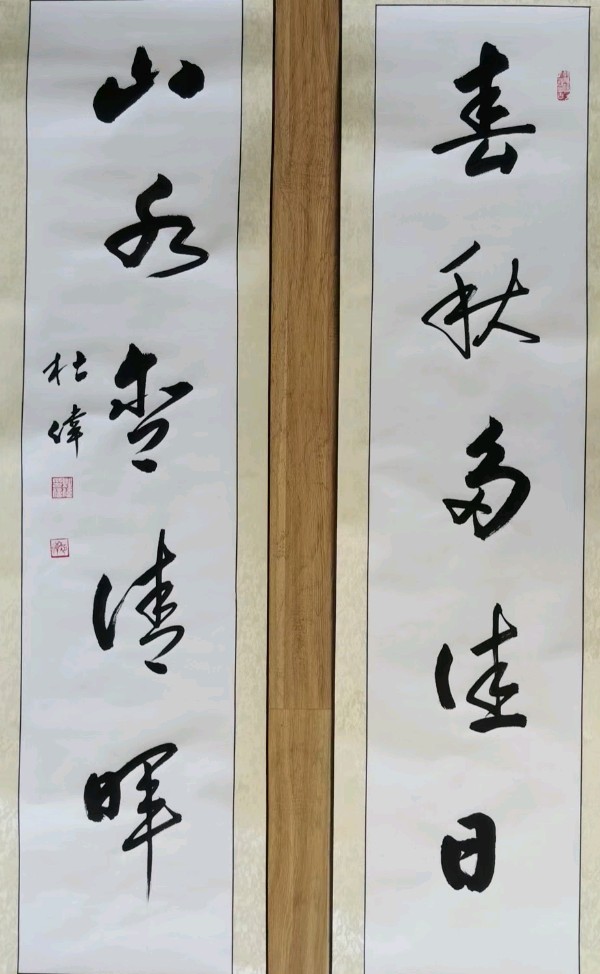 春秋多佳日
山水含清暉
杜偉